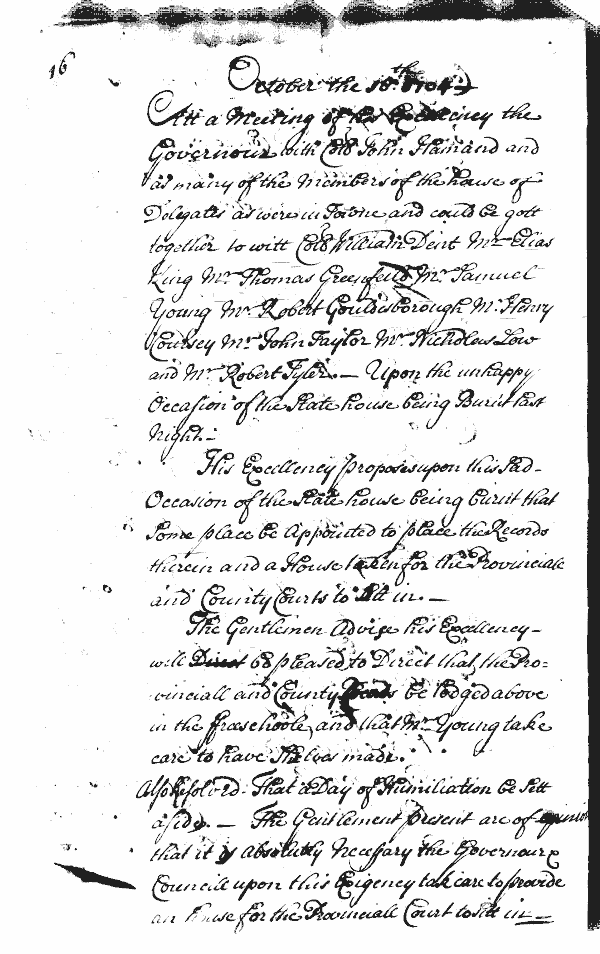 16
October the 18th 1704
Att a Meeting of his Excellency the
Governour with Coll John Hamand and
as many of the Members of the house of
Delegates as were in Towne and could be gott
together to witt Coll William Dent Mr Elias
King Mr Thomas Greenfeild Mr Samuel
Young Mr Robert Gouldesborough Mr Henry
Coursey Mr John Taylor Mr Nicholas Low
and Mr Robert Tyler. — Upon the unhappy
Occasion of the State house being Burnt last
night.—
His Excellency proposes upon this Sad-
Occasion of the State house being burnt that
Some place be Appointed to place the Records
therein and a House taken for the Provinciale
and County Courts to Sitt in. —
The Gentlemen Advise his Excellency-
will be pleased to Direct that the Pro=
vinciall and County be lodged above
in the freeschoole, and that Mr Young take
care to have Shelves made.
Also Resolved. That a Day of Humiliation be Sett
aside. — The Gentlemen present are of opinion
that it is absolutely necessary the Governour &
Councill upon this Exigency take care to provide
an house for the Provinciall Court to sitt in —